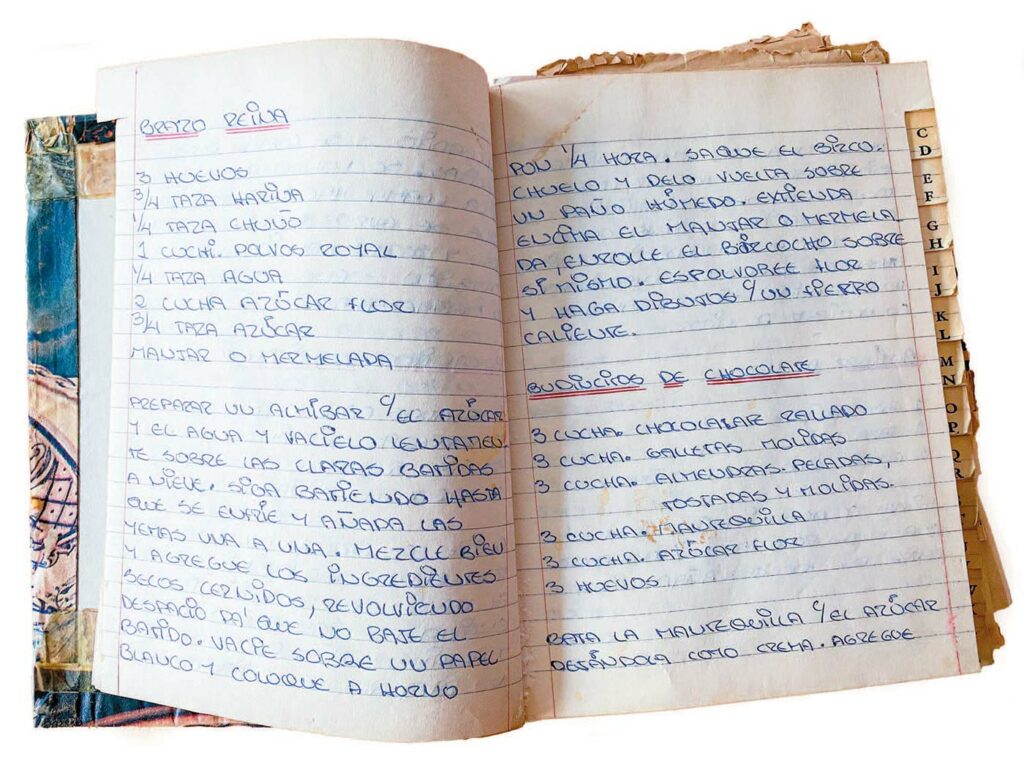 BRAZO REINA
3 HUEVOS
3/4 TAZA HARINA
1/4 TAZA CHUÑO
1 CUCHI. POLVOS ROYAL
1/4 TAZA AGUA
2 CUCHA AZÚCAR FLOR
3/4 TAZA AZÚCAR
MANJAR O MERMELADA
PREPARAR UN ALMIBAR C/EL AZÚCAR
Y EL AGUA Y VACIELO LENTAMEN
TE SOBRE LAS CLARAS BATIDAS
A NIEVE. SIGA BATIENDO HASTA
QUE SE ENFRIE Y AÑADA LAS
YEMAS UNA A UNA. MEZCLE BIEN
Y AGREGUE LOS INGREDIENTES
SECOS CERNIDOS, REVOLVIENDO
DESPACIO PA' QUE NO BAJE EL
BATIDO. VACIE SOBRE UN PAPEL
BLANCO Y COLOQUE A HORNO
POR 1/4 HORA. SAQUE EL BIZCO-
CHUELO Y DELO VUELTA SOBRE
UN PAÑO HÚMEDO. EXTIENDA
ENCIMA EL MANJAR O MERMELA-
DA, ENROLLE EL BIZCOCHO SOBRE
SI MISMO. ESPOLVOREE FLOR
Y HAGA DIBUJOS C/UN FIERRO
CALIENTE.
BUDINCITOS DE CHOCOLATE
3 CUCHA. CHOCOLATE RALLADO
3 CUCHA. GALLETAS MOLIDAS
3 CUCHA. ALMENDRAS. PELADAS,
TOSTADAS Y MOLIDAS.
3 CUCHA. MANTEQUILLA
3 CUCHA. AZÚCAR FLOR
3 HUEVOS
BATA LA MANTEQUILLA C/EL AZÚCAR
DEJÁNDOLA COMO CREMA. AGREGUE
C
D
E
F
G
H
I
J
K
L
M
N
O
P
Q
R